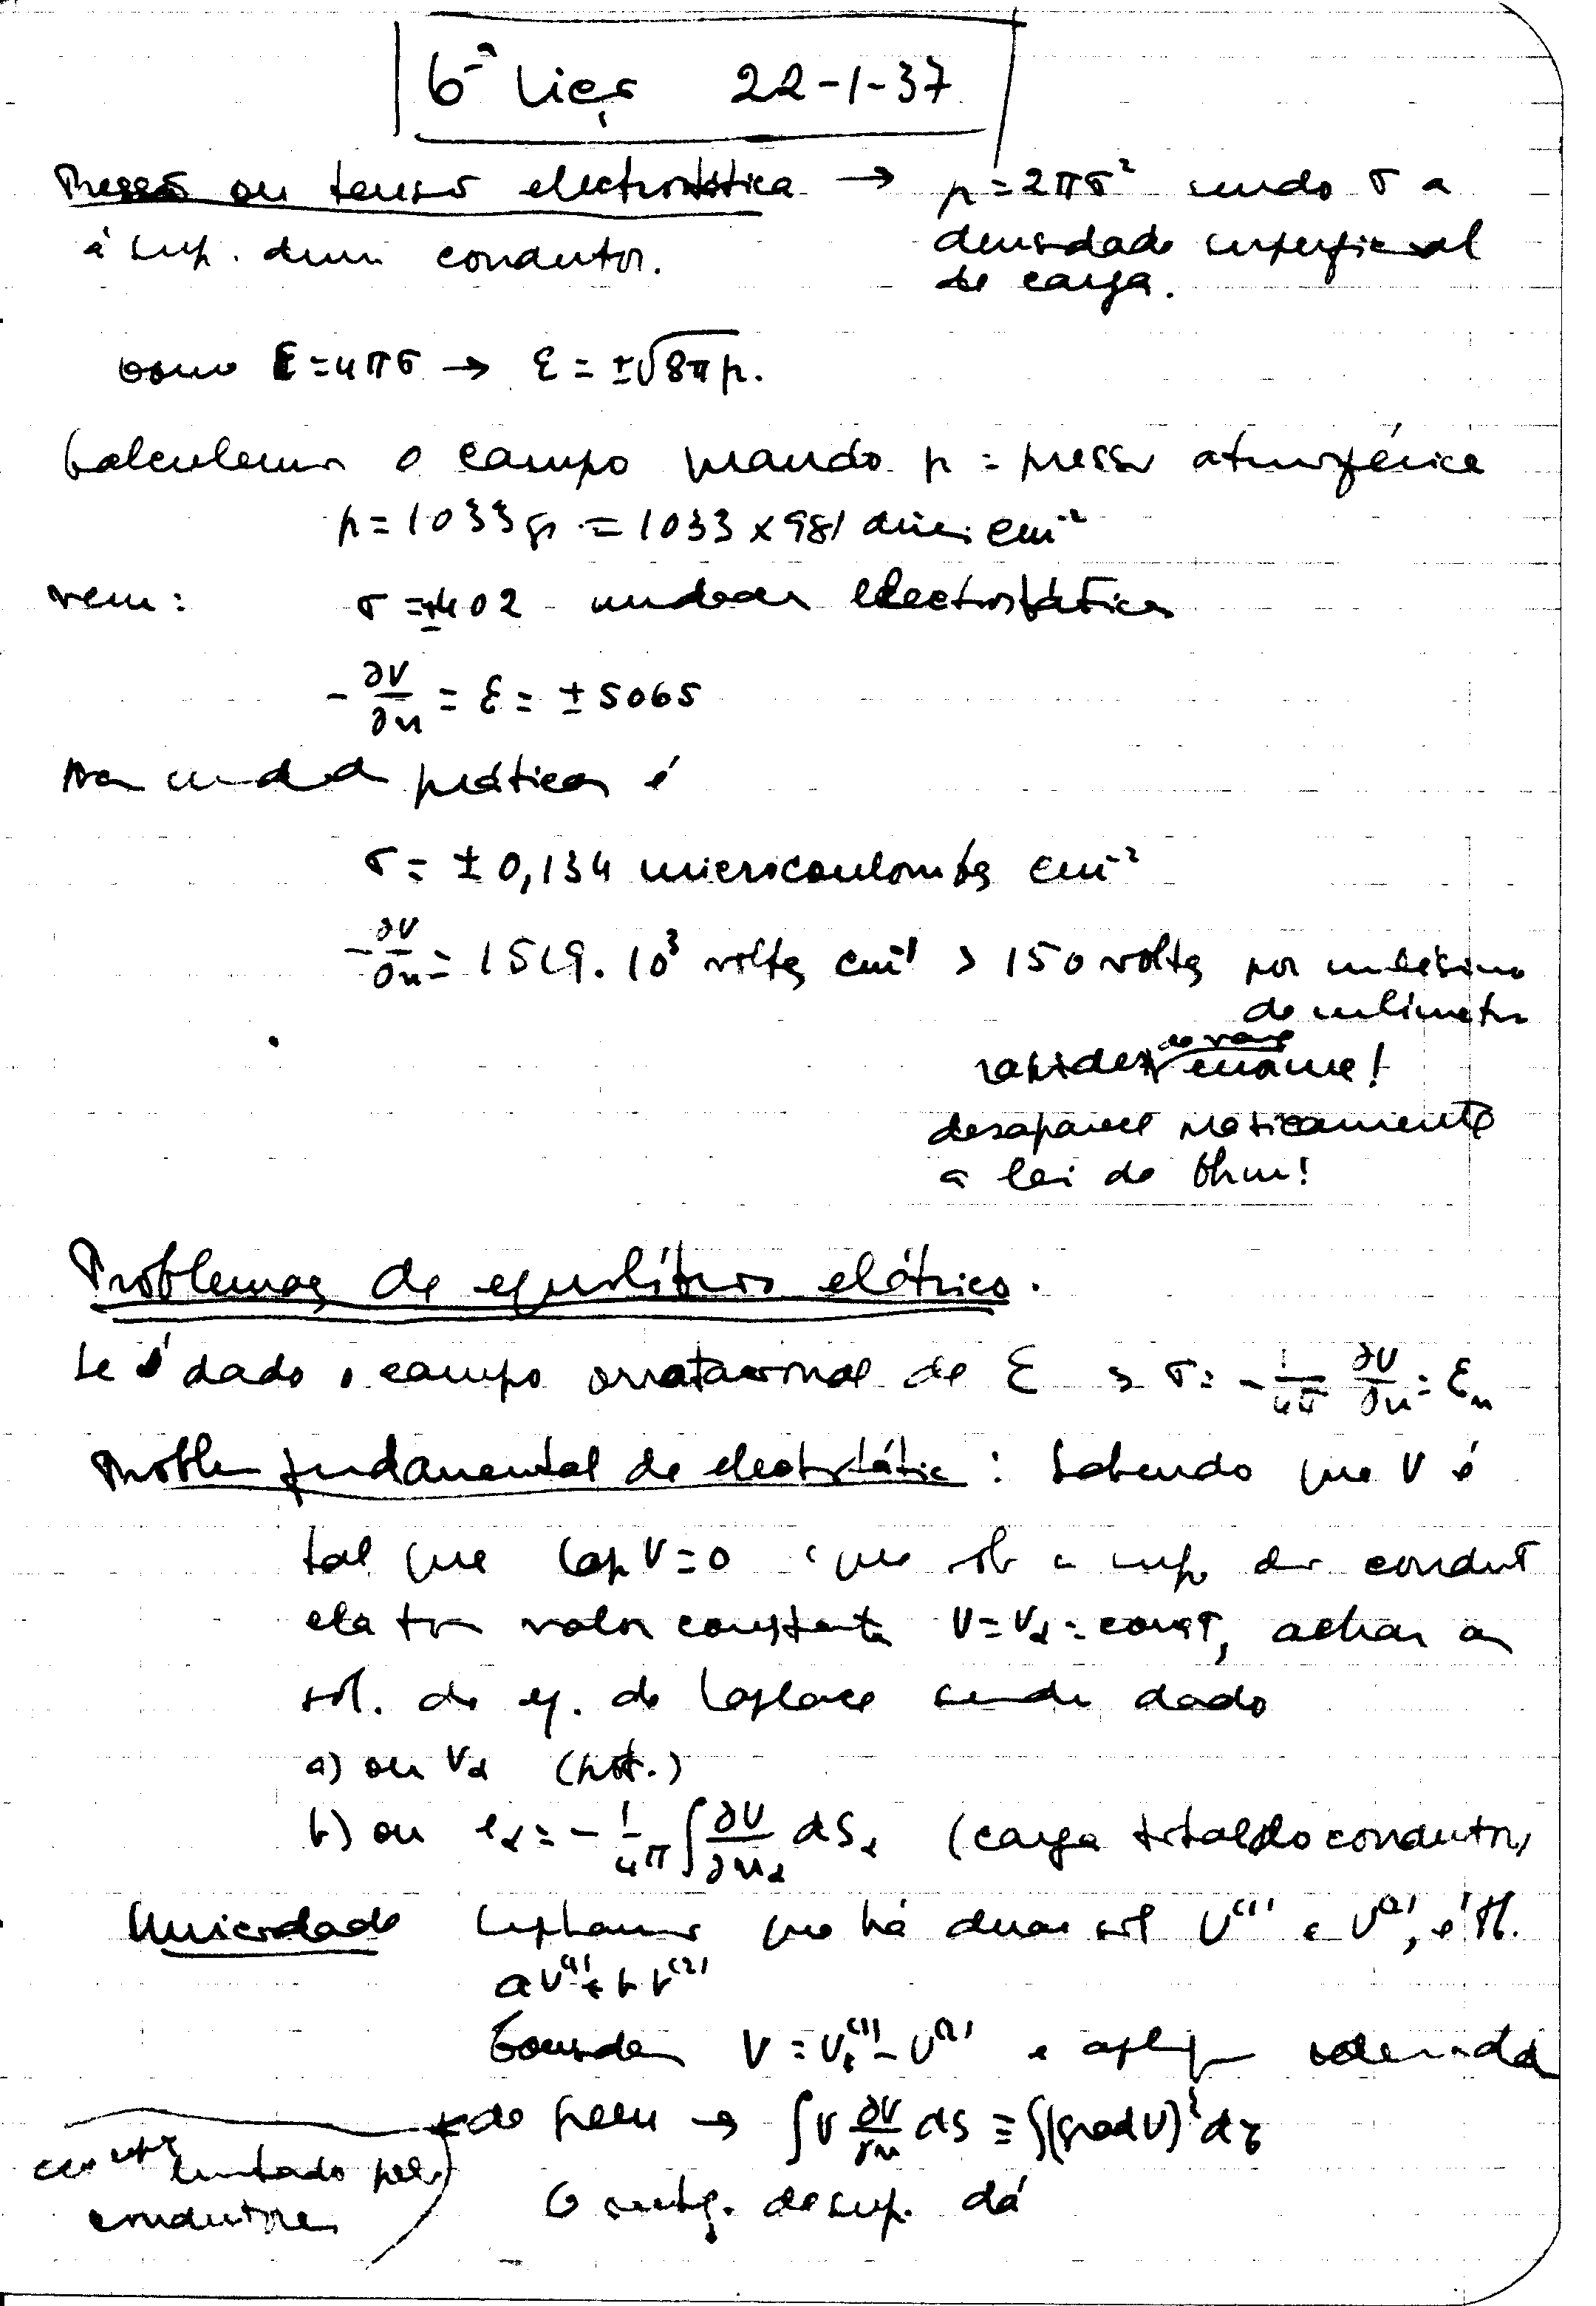 6ª Lição 22-1-37
Pressão ou tensão electrostática → p = 2πσ² sendo σ a
à sup. dum condutor. densidade superficial
de carga.
como ℰ = 4πσ → ℰ = ±√8πp.
Calculemos o campo quando p = pressão atmosférica
p = 1033 gr = 1033 × 981 dines cm⁻²
vem: σ = ±402 unidades electrostáticas
-∂V/∂n = ℰ = ± 5065
Nas unidad práticas é
σ = ± 0,134 microcoulombs cm⁻²
-∂V/∂n = 1519. 10³ volts cm⁻¹ > 150 volts por milésimo
de milímetro
rapidez de var enorme!
desaparece praticamente
a lei de Ohm!
Problemas de equilíbrio elétrico.
Se é dado o campo irrotacional de ℰ → σ = -1/4π ∂V/∂n = ℰₙ
Problem fundamental de electrostátic: Sabendo que V é
tal que lap V = 0 e que sôb a sup. dos condut
ela tem valor constante V = Vα = const, achar as
sol. da eq. de Laplace sendo dado
a) ou Vα (pot.)
b) ou eα = -1/4π ∫ ∂V/∂nα dSα (carga total do condutor)
Unicidade Suphamos que há duas sol V⁽¹⁾ e V⁽²⁾, é tb.
aV⁽¹⁾ + bV⁽²⁾
Consider V = V⁽¹⁾ - V⁽²⁾ e apliq
de Green → ∫V ∂V/∂n dS ≡ ∫(grad V)² dτ
limitado pelos
condutores
O integ. de sup. dá